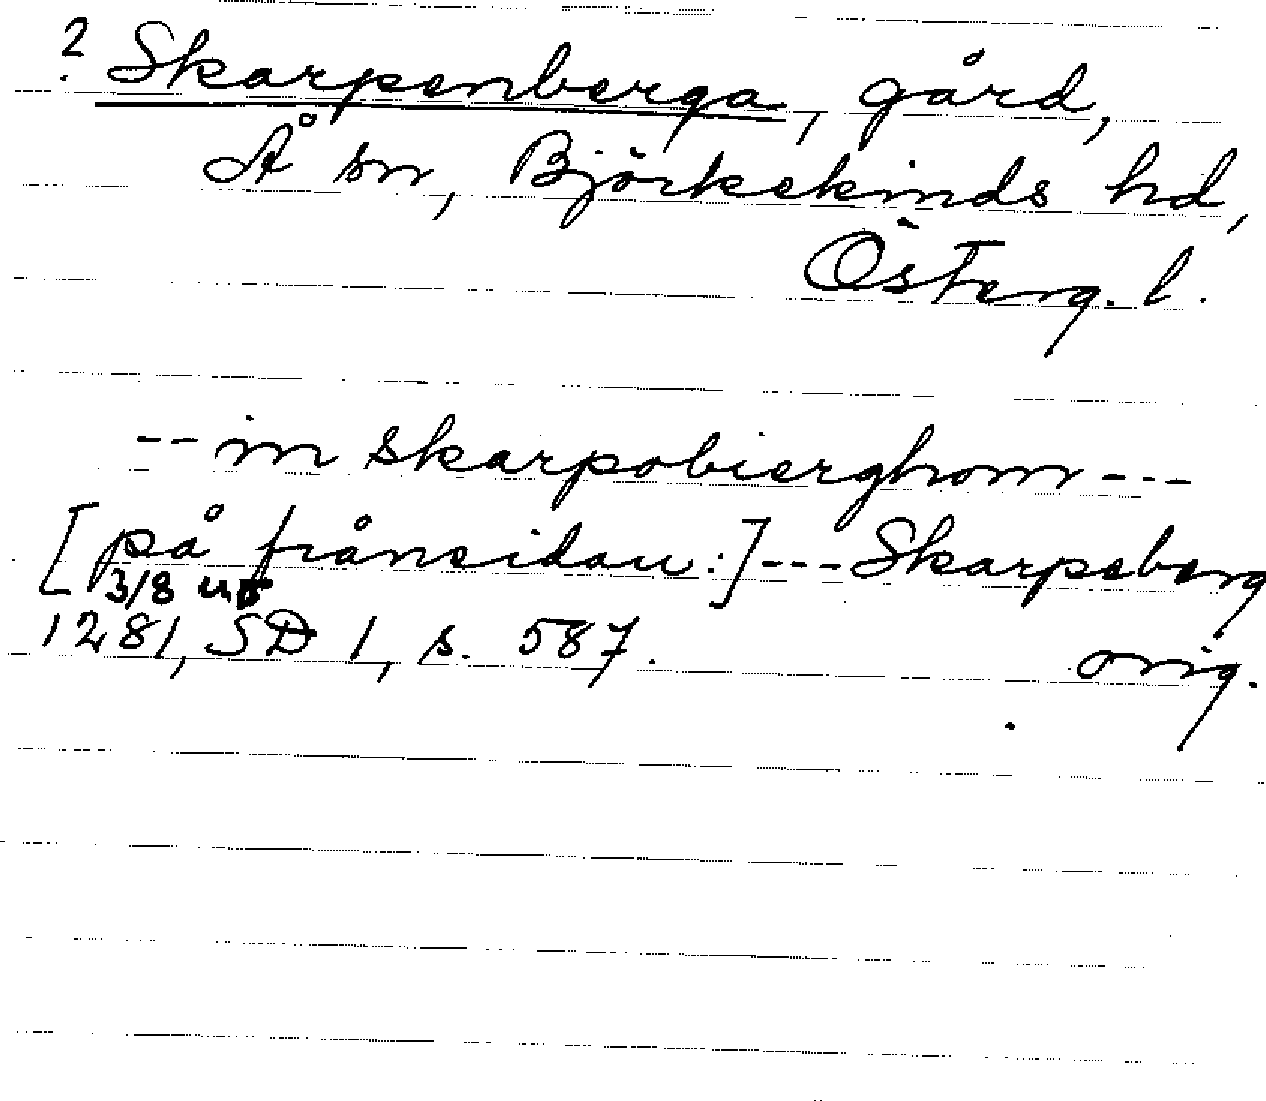 ? Skarpenberga, gård,
Å sn, Björkekinds hd,
Österg. l.
-- in skarpobierghom ---
[på frånsidan:] --- Skarpeberg
3/8
1281, SD 1, s. 587. orig.